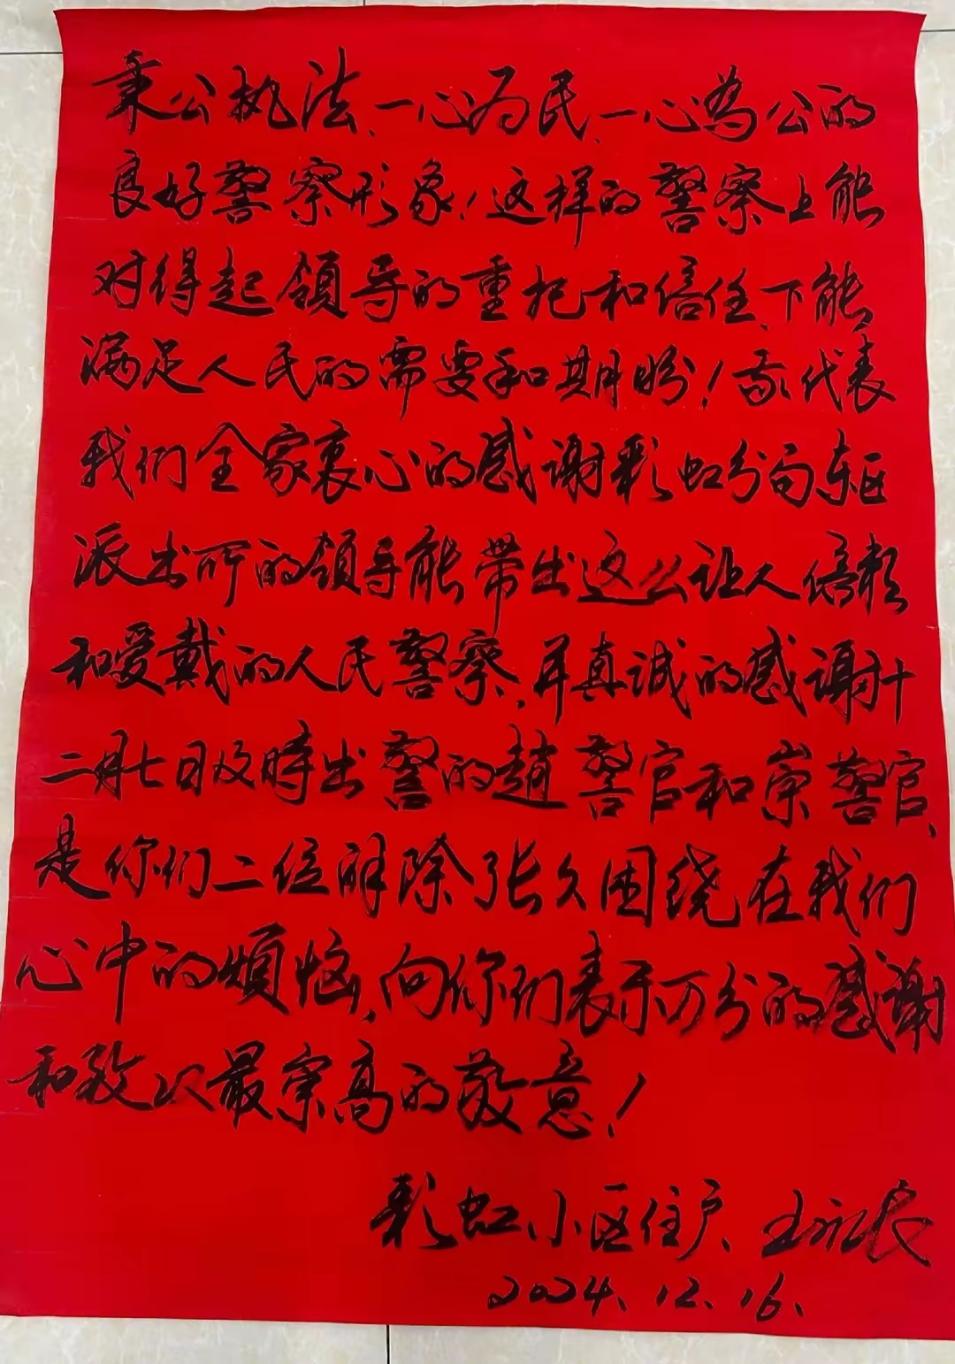 秉公执法、一心为民、一心為公的
良好警察形象！这样的警察上能
对得起領导的重托和信任、下能
满足人民的需要和期盼！我代表
我们全家衷心的感谢彩虹分局东区
派出所的领导能带出这么让人信赖
和爱戴的人民警察，并真诚的感谢十
二月七日及時出警的趙警官和崇警官、
是你们二位解除了长久困绕在我们
心中的煩恼，向你们表示万分的感谢
和致以最崇高的敬意！
彩虹小区住户、王永长
2024、12、16、